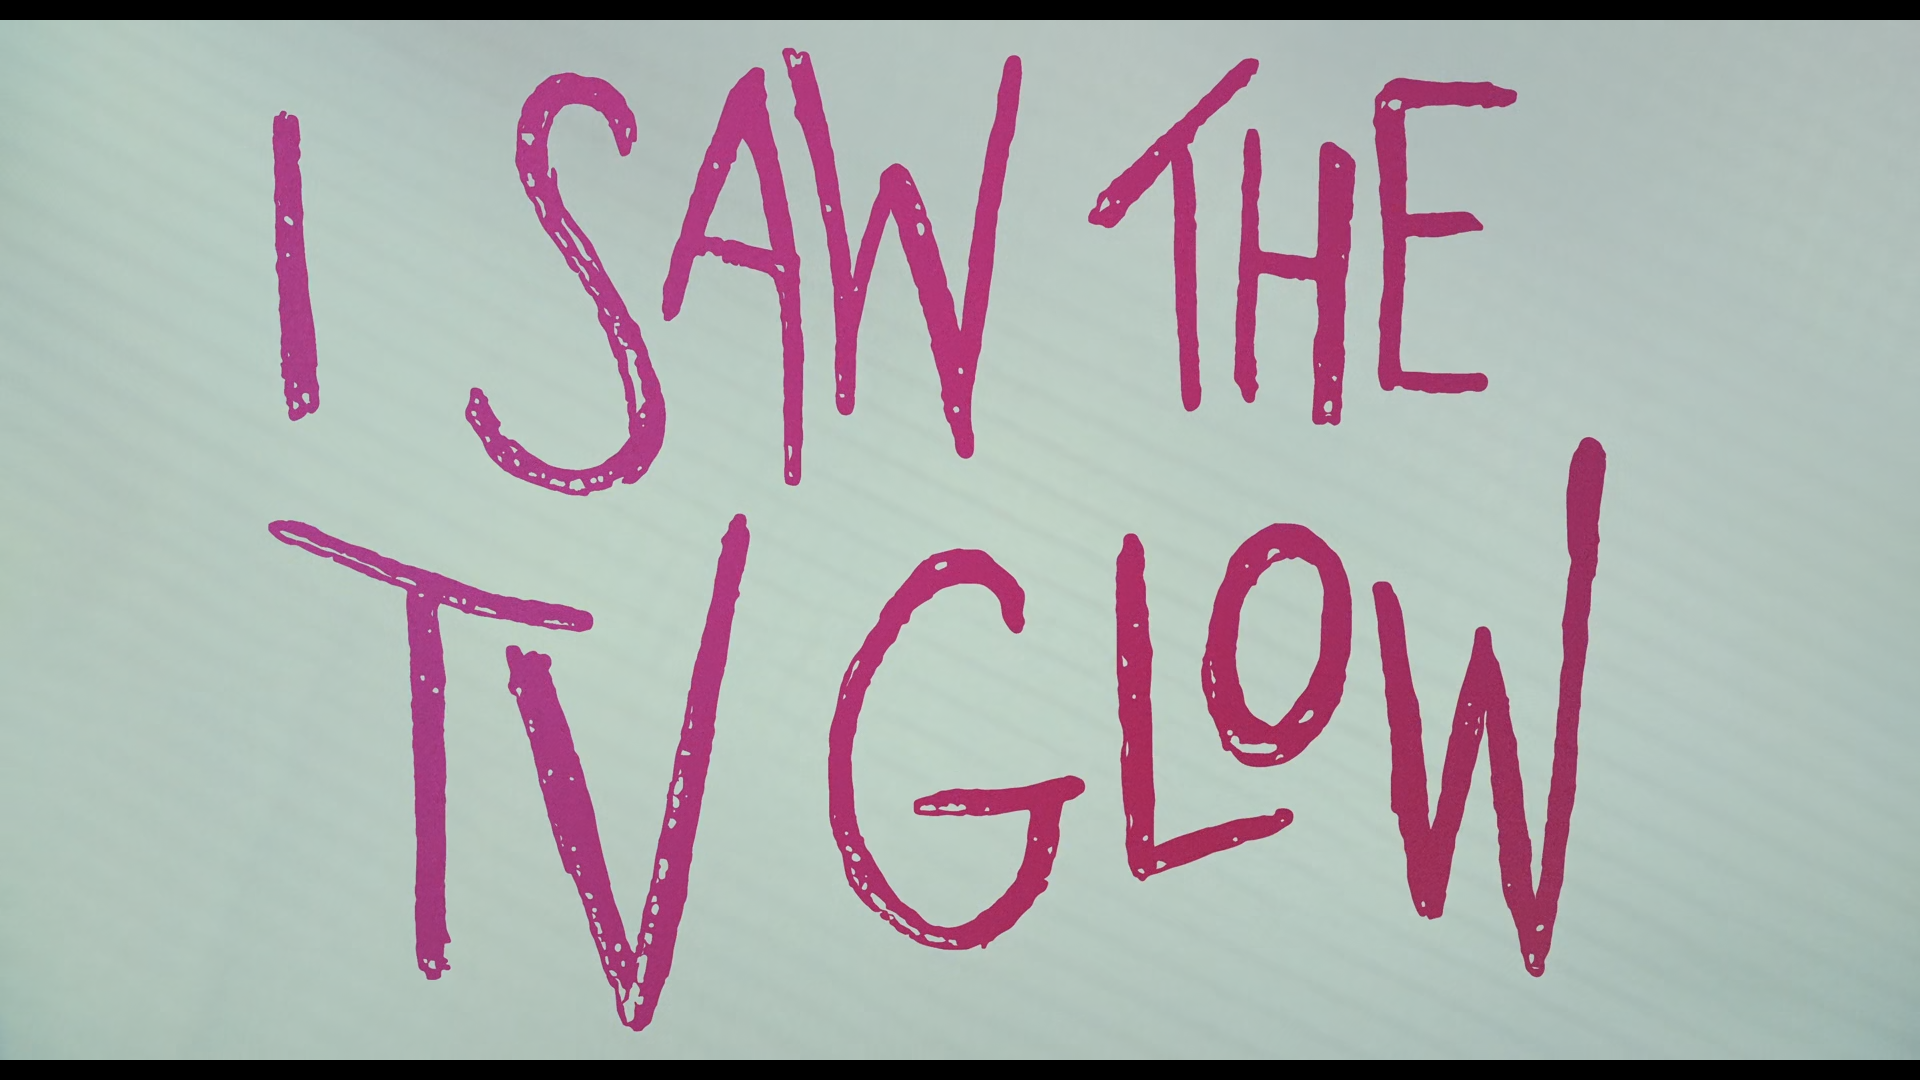 I SAW THE
TV GLOW